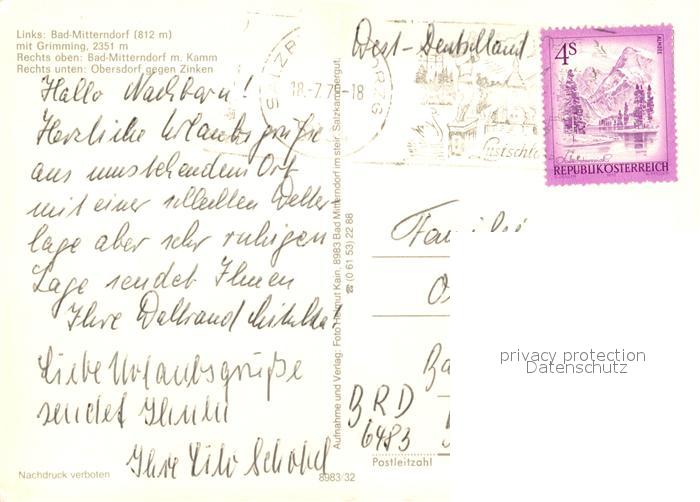 Links: Bad-Mitterndorf (812 m)
mit Grimming, 2351 m
Rechts oben: Bad-Mitterndorf m. Kamm
Rechts unten: Obersdorf gegen Zinken
Hallo Nachbarn!
Herzliche Urlaubsgrüße
aus umstehendem Ort
mit einer schlechten Wetter-
lage aber sehr ruhigen
Lage sendet Ihnen
Ihre Waltraud
Liebe Urlaubsgrüße
sendet Ihnen
Ihre Lilo
Nachdruck verboten
8983/32
Aufnahme und Verlag: Foto Helmut Kain, 8983 Bad Mitterndorf im steir. Salzkammergut,
☎ (0 61 53) 22 88
18.-7.79-18
West-Deutschland
4S
ALMSEE
REPUBLIK ÖSTERREICH
BRD
6483
Postleitzahl
privacy protection
Datenschutz